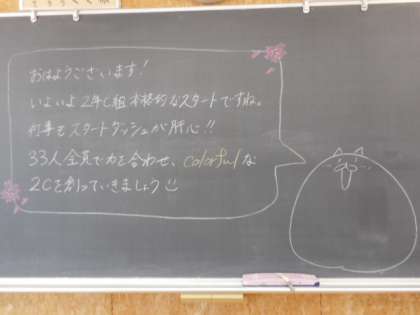 おはようございます!
いよいよ2年C組本格的なスタートですね。
何事もスタートダッシュが肝心!!
33人全員で力を合わせ、colorfulな
2Cを創っていきましょう